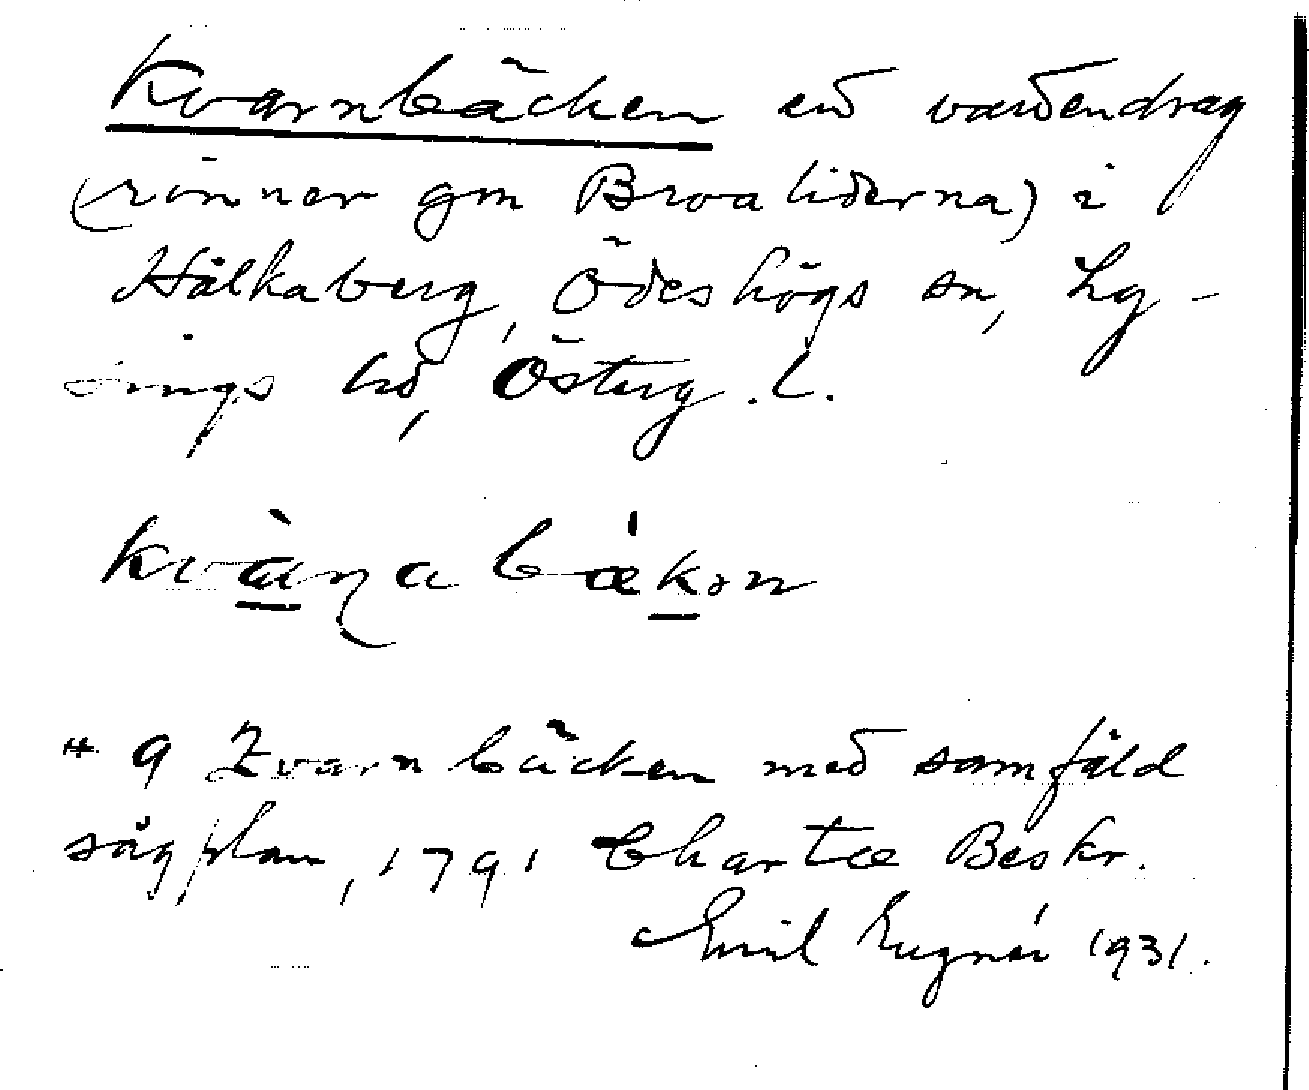 Kvarnbäcken ett vattendrag
(rinner gm Broaliderna) i
Hålkaberg, Ödeshögs sn, Ly-
sings hd, Österg. l.
kvàɳa bækən
9 Qvarnbäcken med samfäld
sågplan, 1791 Chartæ Beskr.
Emil 1931.